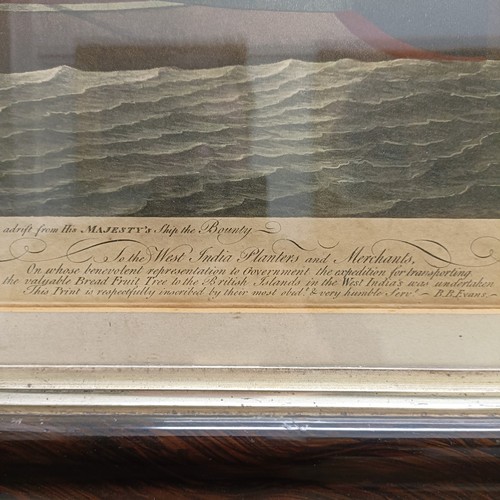 adrift from His MAJESTY's Ship the Bounty
To the West India Planters and Merchants,
On whose benevolent representation to Government the expedition for transporting
the valuable Bread Fruit Tree to the British Islands in the West India's was undertaken
This Print is respectfully inscribed by their most obed.t & very humble Serv.t — B.B. Evans.